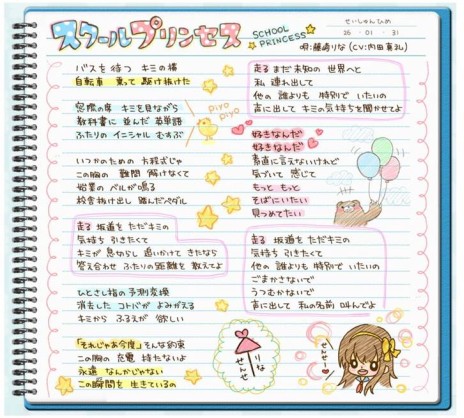 スクールプリンセス
SCHOOL PRINCESS
せいしゅんひめ
26・01・31
唄:藤崎りな(CV:内田真礼)
バスを待つ キミの横
自転車 乗って 駆け抜けた
窓際の席 キミを見ながら
教科書に 並んだ 英単語
ふたりの イニシャル むすぶ
piyo
piyo
いつかのための 方程式じゃ
この胸の 難問 解けなくて
始業の ベルが鳴る
校舎抜け出し 踏んだペダル
走る 坂道を ただキミの
気持ち 引きたくて
キミが 息切らし 追いかけて きたなら
答え合わせ ふたりの距離を 教えてよ
ひとさし指の 予測変換
消去した コトバが よみがえる
キミから ふるえが 欲しい
「それじゃあ今度」そんな約束
この胸の 充電 持たないよ
永遠 なんかじゃない
この瞬間を 生きているの
走る まだ未知の 世界へと
私 連れ出して
他の 誰よりも 特別で いたいの
声に出して キミの気持ちを聞かせてよ
好きなんだ
好きなんだ
素直に言えないけれど
気づいて 感じて
もっと もっと
そばにいたい
見つめてたい
走る 坂道を ただキミの
気持ち 引きたくて
他の 誰よりも 特別で いたいの
ごまかさないで
うつむかないで
声に出して 私の名前 叫んでよ
りな
せんせ
せんせー